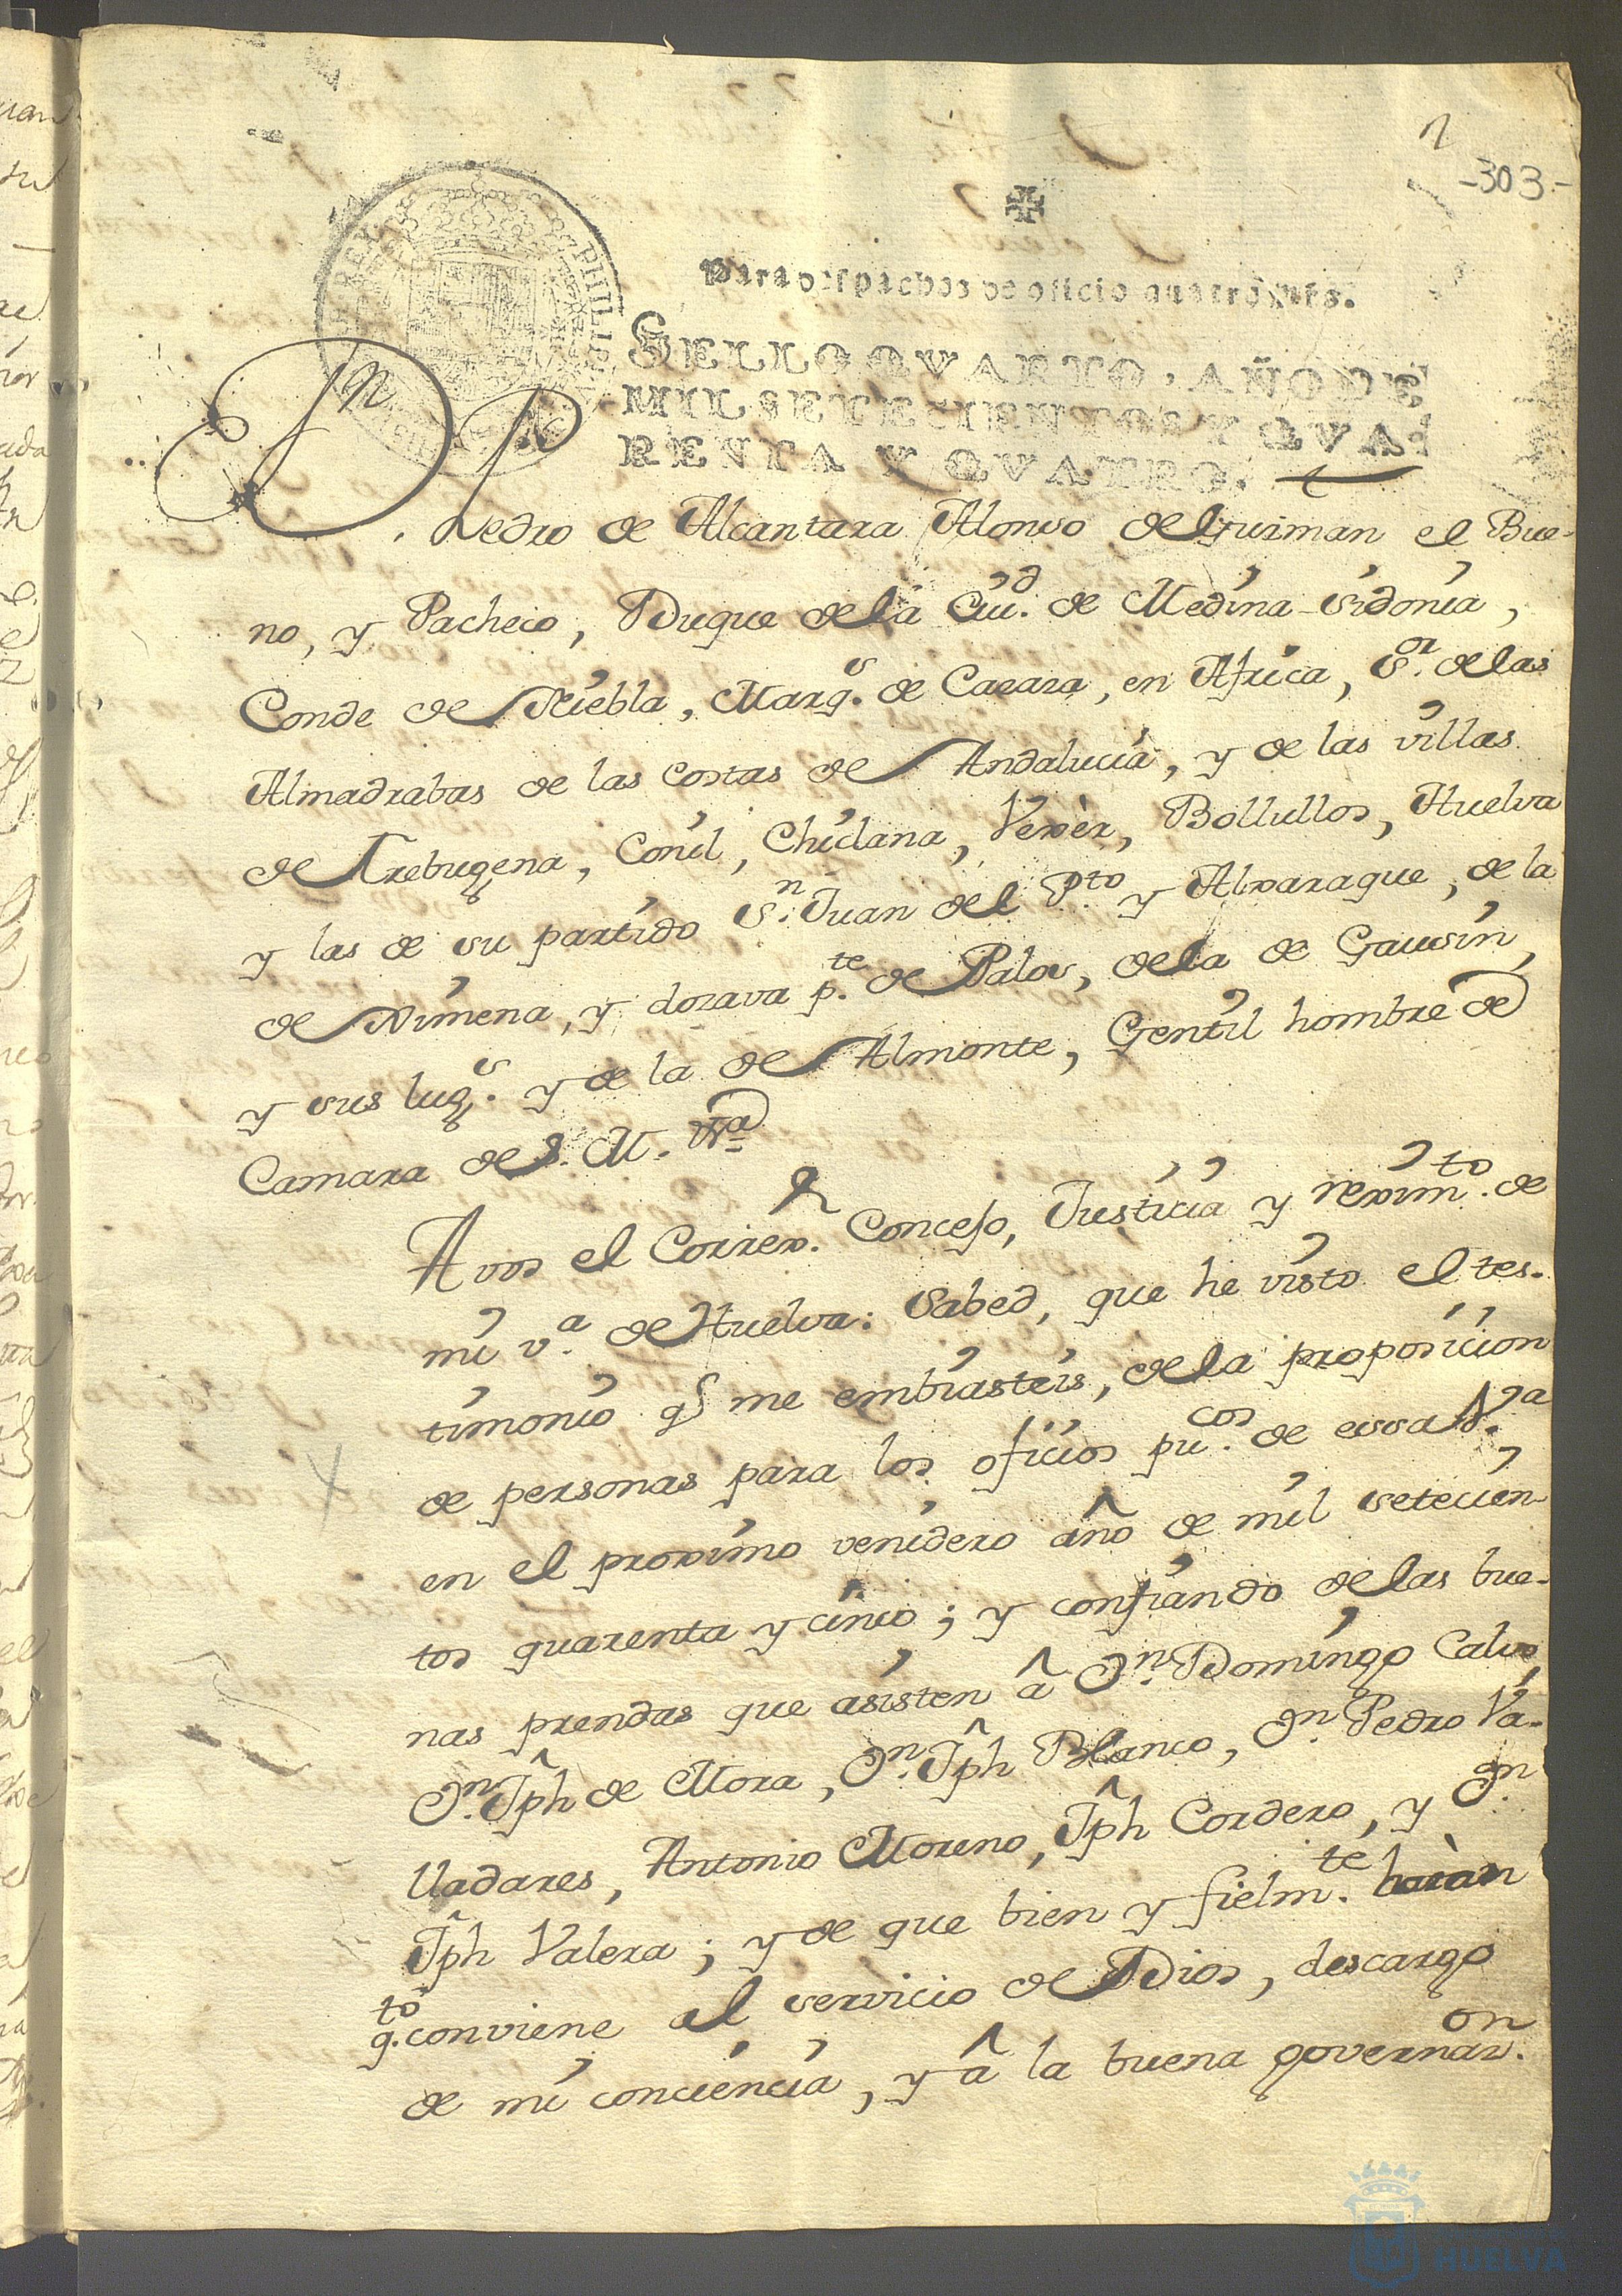 -303-
Para despachos de oficio quatro mrs.
SELLO QVARTO, AÑO DE
MIL SETECIENTOS Y QVA-
RENTA Y QVATRO.
PHILIP
Dn. Pedro de Alcantara Alonso de Guzman el Bue-
no, y Pacheco, Duque de la Ciud. de Medina Sidonia,
Conde de Niebla, Marqs. de Cazaza, en Africa, Sor. de las
Almadrabas de las Costas de Andalucia, y de las villas
de Trebugena, Conil, Chiclana, Vexèr, Bollullos, Huelva
y las de su partido Sn. Juan del Pto. y Alxaraque, de la
de Ximena, y dozava pte. de Palos, de la de Gausin,
y sus lugs. y de la de Almonte, Gentil hombre de
Camara de S. M. &a
A vos el Correxr. Concejo, Justicia y reximto. de
mi va. de Huelva: Sabed, que he visto el tes-
timonio q me embiasteis, de la proposicion
de personas para los oficios pucos. de essa Va.
en el proximo venidero año de mil setecien-
tos quarenta y cinco; y confiando de las bue-
nas prendas que asisten â Dn. Domingo Calvo,
Dn. Jph de Mora, Dn. Jph Blanco, Dn. Pedro Va-
lladares, Antonio Moreno, Jph Cordero, y Dn.
Jph Valera; y de que bien y fielmte. haràn
qto. conviene al servicio de Dios, descargo
de mi conciencia, y â la buena governaon.
HUELVA